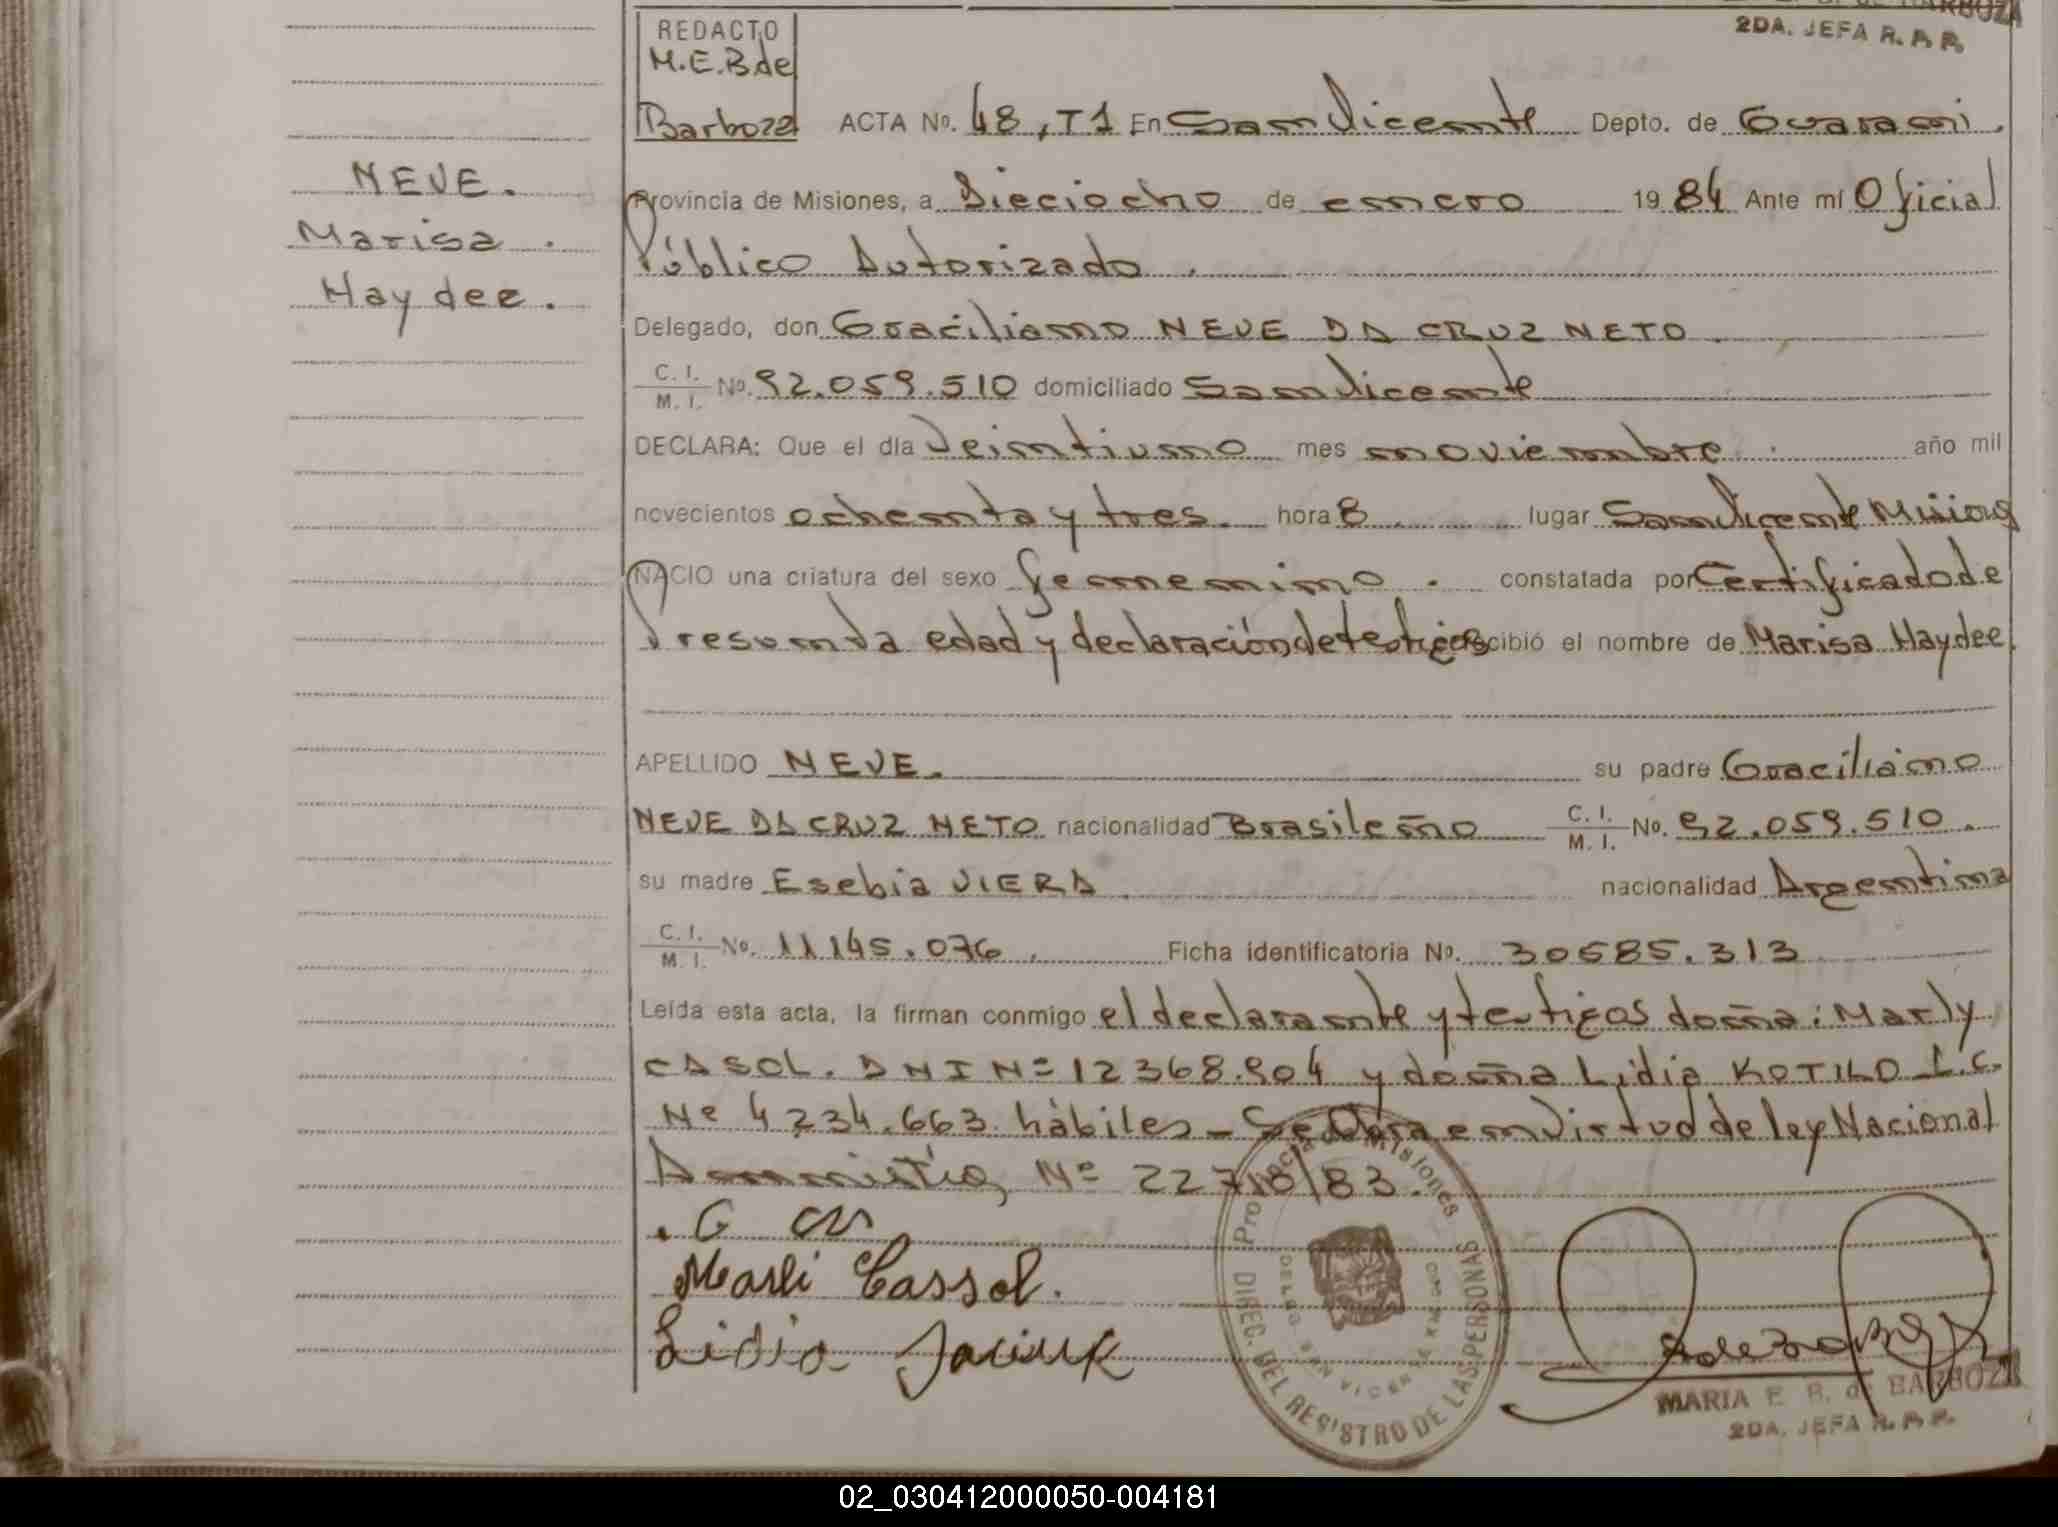 2DA. JEFA R. P. P.
REDACTO
M.E.B de
Barboza ACTA Nº. 48, T1 En San Vicente Depto. de Guarani.
NEVE.
Marisa.
Haydee.
Provincia de Misiones, a Dieciocho de enero 1984 Ante mí Oficial
Público Autorizado.
Delegado, don Graciliano NEVE DA CRUZ NETO
C. I. M. I. Nº. 92.059.510 domiciliado San Vicente
DECLARA: Que el día Veintiuno mes noviembre año mil
novecientos ochenta y tres. hora 8 lugar San Vicente Misiones
NACIO una criatura del sexo femenino. constatada por Certificado de
Presunta edad y declaración de testigos recibió el nombre de Marisa Haydee.
APELLIDO NEVE. su padre Graciliano
NEVE DA CRUZ NETO nacionalidad Brasileño C. I. M. I. No. 92.059.510.
su madre Esebia VIERA nacionalidad Argentina
C. I. M. I. Nº. 11145.076. Ficha identificatoria Nº. 30585.313
Leída esta acta, la firman conmigo el declarante y testigos doña: Marly
CASOL. DNI Nº 12368.904 y doña Lidia KOTILO L.C.
Nº 4234.663 hábiles - Se Obra en Virtud de ley Nacional
Amnistia, Nº 22718/83.
Marli Cassol.
Lidia
Provincia de Misiones
DIREC. DEL REGISTRO DE LAS PERSONAS
MARIA E. B. de BARBOZA
2DA. JEFA R. P. P.
02_030412000050-004181